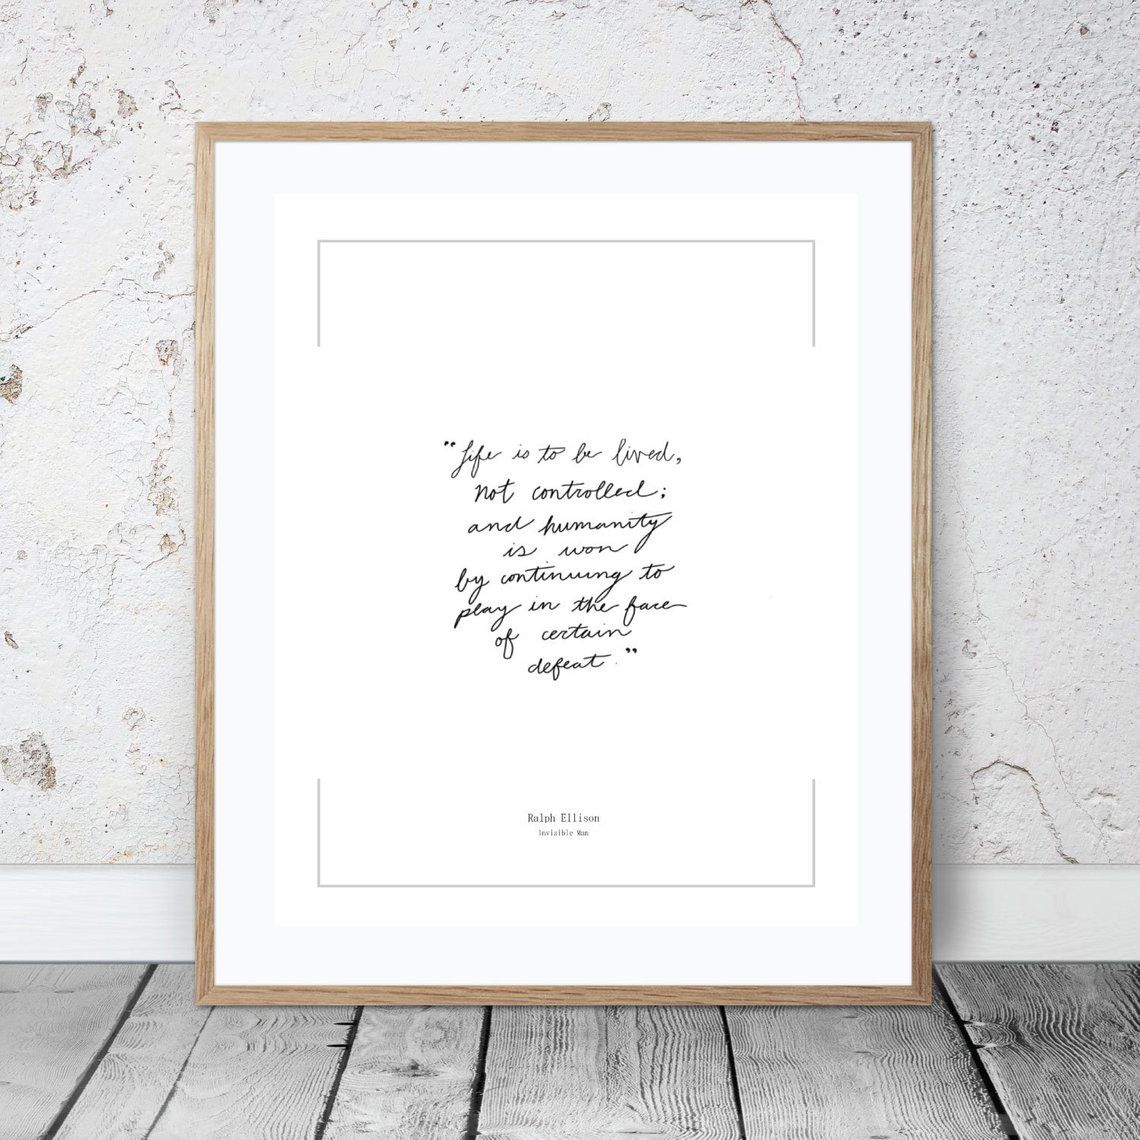 “Life is to be lived,
not controlled;
and humanity
is won
by continuing to
play in the face
of certain
defeat.”
Ralph Ellison
Invisible Man